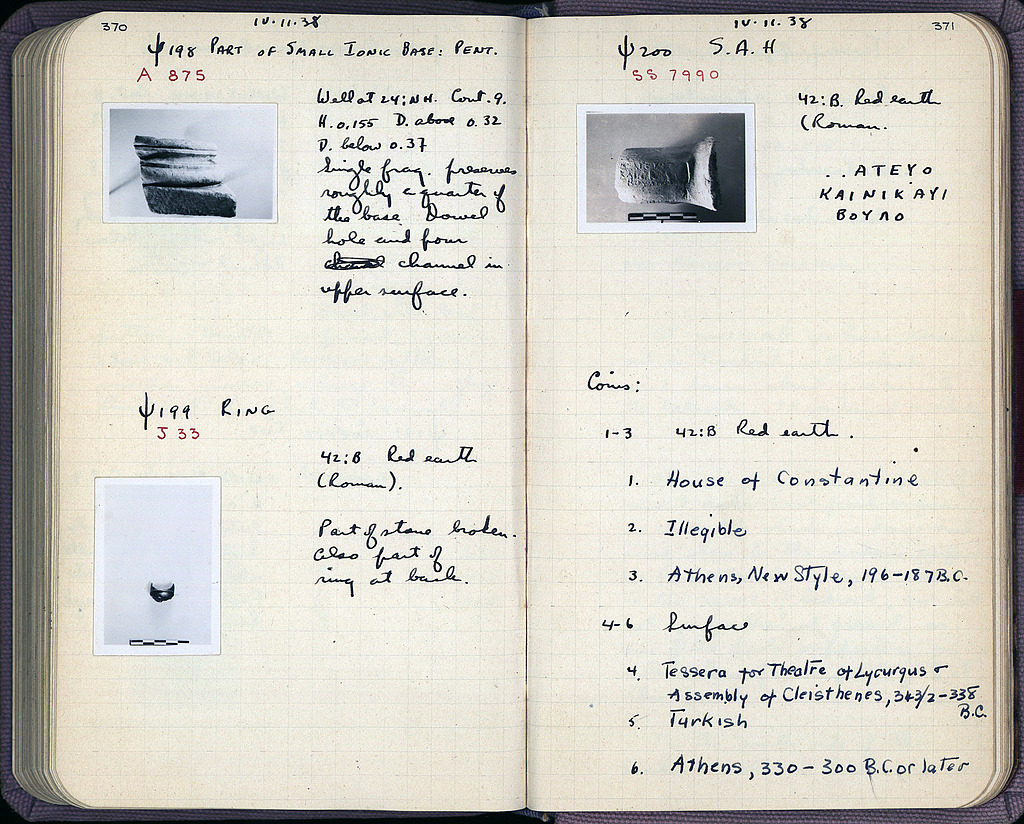 370
IV.11.38
Ψ198 PART OF SMALL IONIC BASE: PENT.
A 875
Well at 24:NH. Cont. 9.
H. 0.155 D. above 0.32
D. below 0.37
Single frag. preserves
roughly a quarter of
the base. Dowel
hole and pour
channel in
upper surface.
Ψ199 RING
J 33
42:B Red earth
(Roman).
Part of stone broken.
Also part of
ring at back.
371
IV.11.38
Ψ200 S.A.H
SS 7990
42:B. Red earth
(Roman.
..ATEYO
KAINIKAYI
BOYΛO
Coins:
1-3 42:B Red earth.
1. House of Constantine
2. Illegible
3. Athens, New Style, 196-187 B.C.
4-6 Surface
4. Tessera for Theatre of Lycurgus or
Assembly of Cleisthenes, 343/2-338
B.C.
5. Turkish
6. Athens, 330-300 B.C. or later